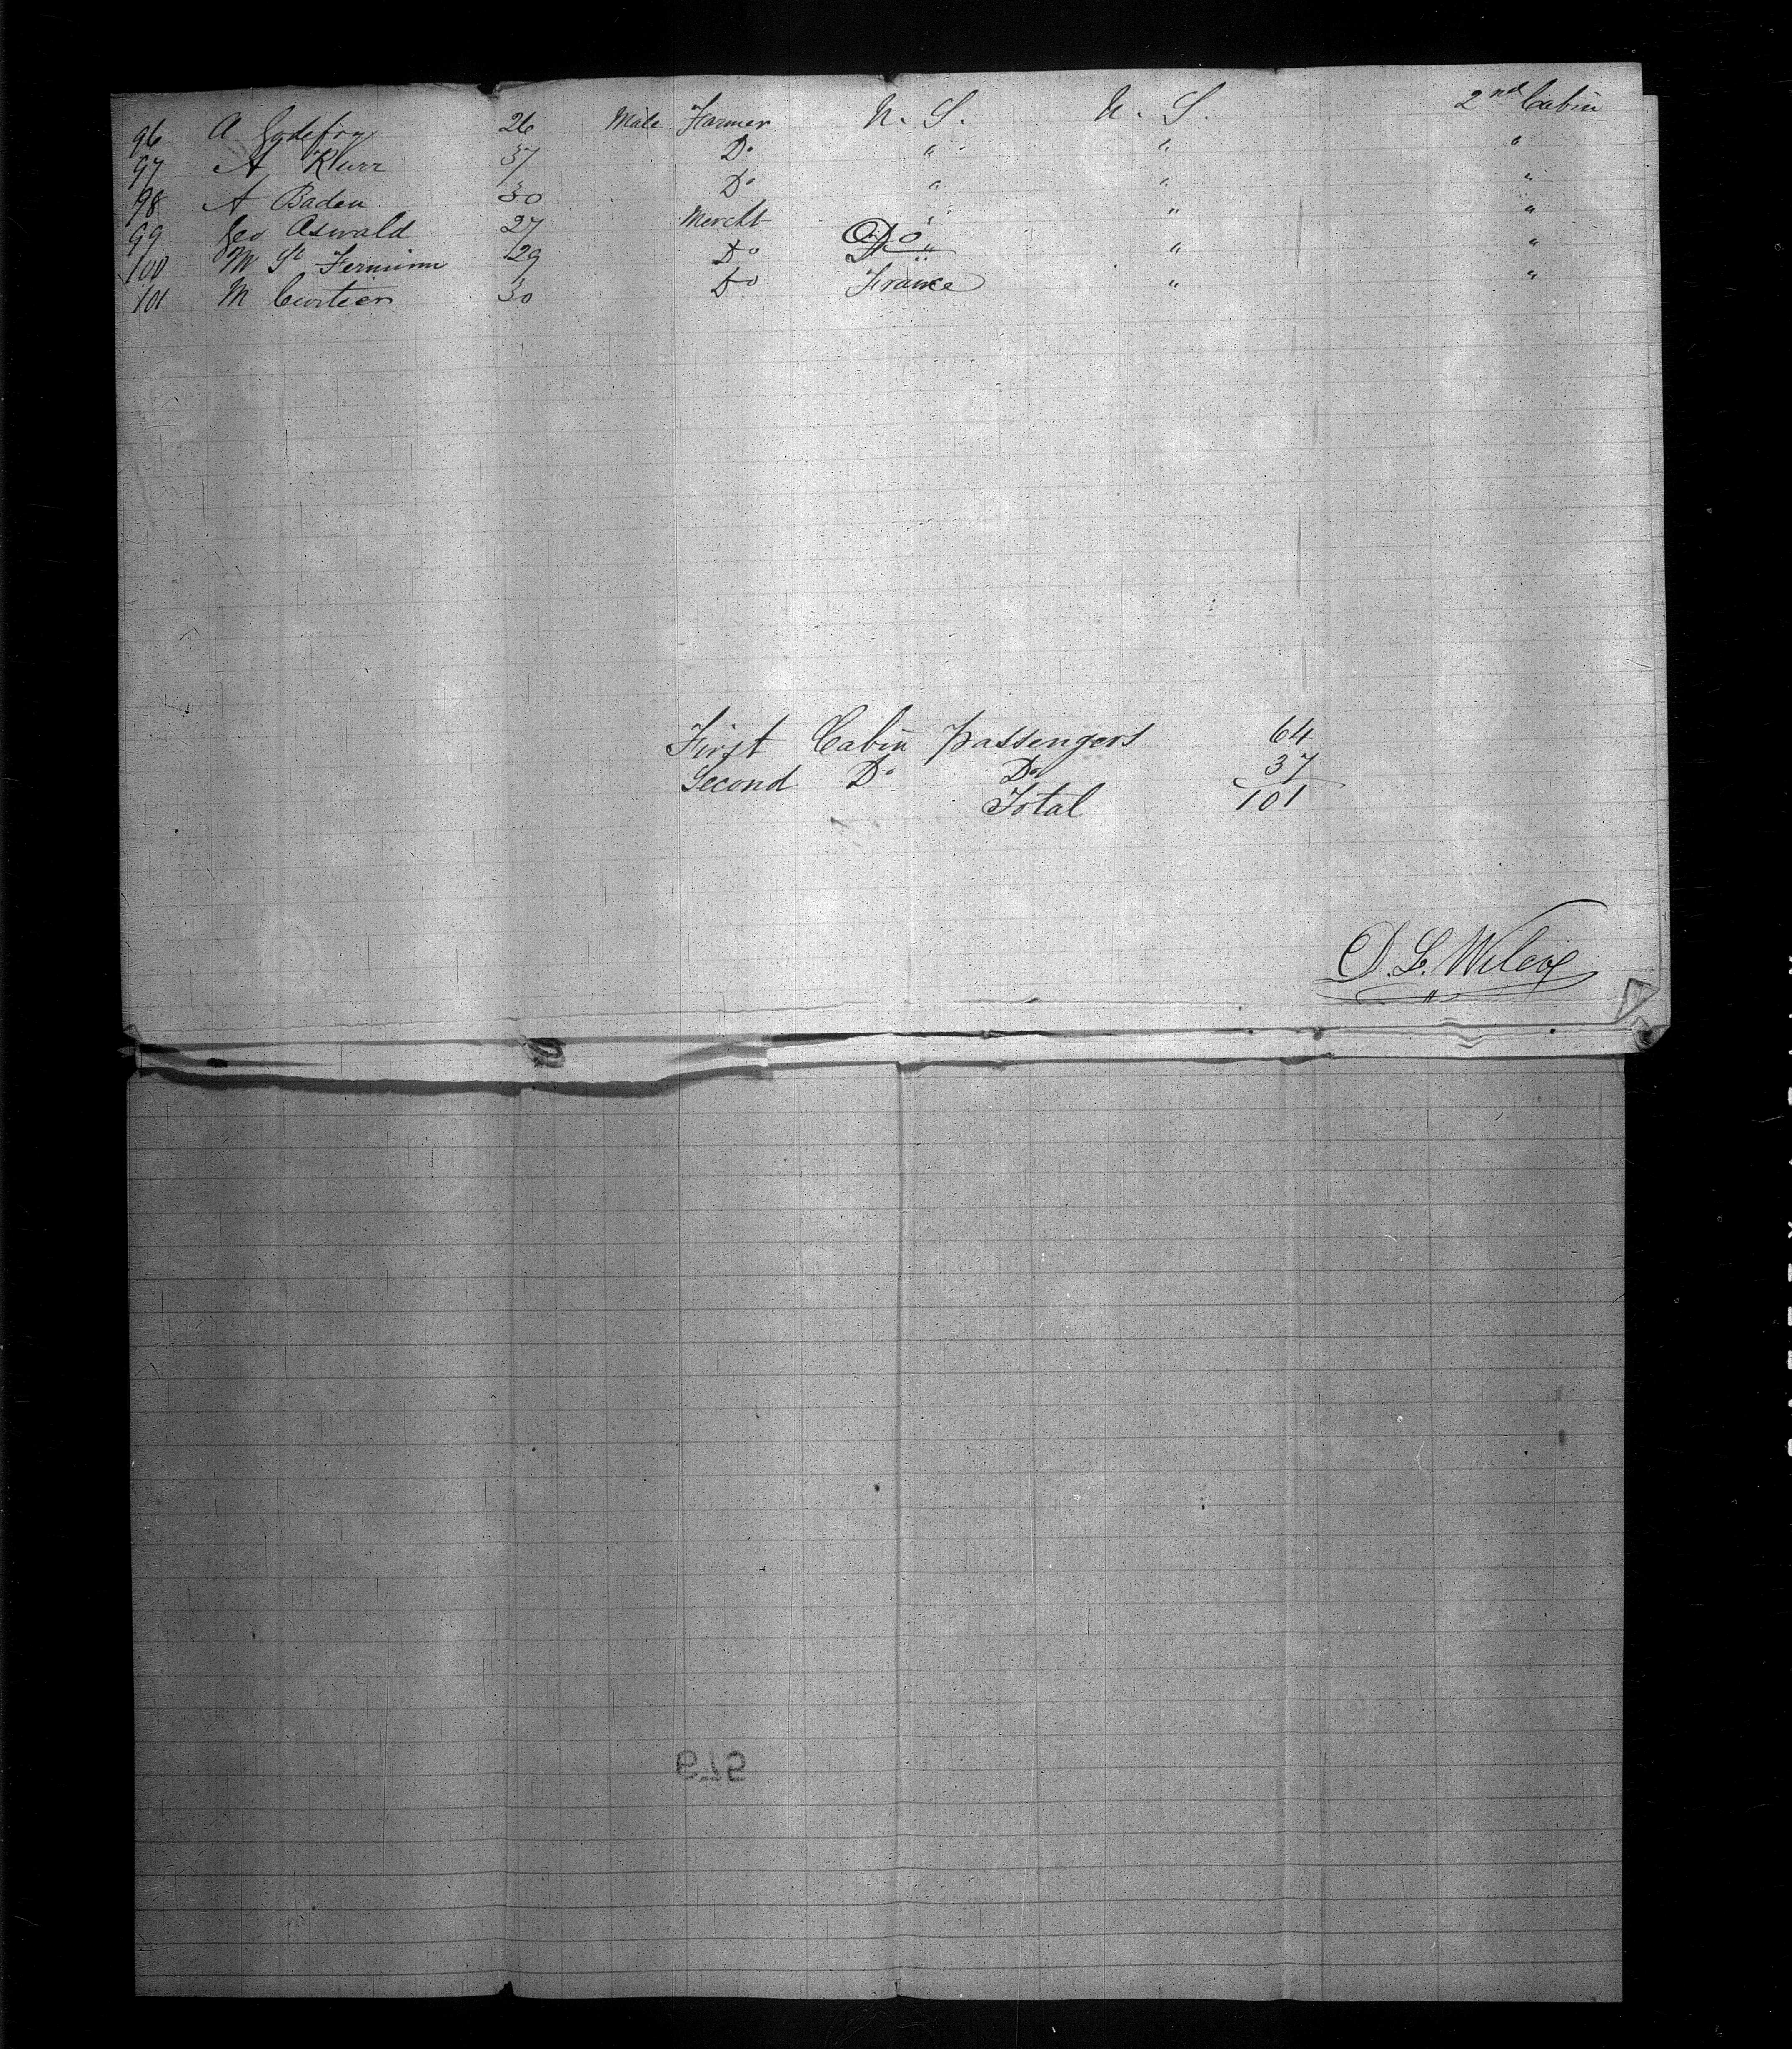 96 A Godefroy 26 Male Farmer U. S. U. S. 2nd Cabin
97 A Kurr 37 Do " " "
98 A Baden 30 Do " " "
99 Geo Oswald 27 Mercht " " "
100 M St 29 Do Do " "
101 M 30 Do France " "
First Cabin passengers 64
Second Do Do 37
Total 101
D. L. Wilcox
675